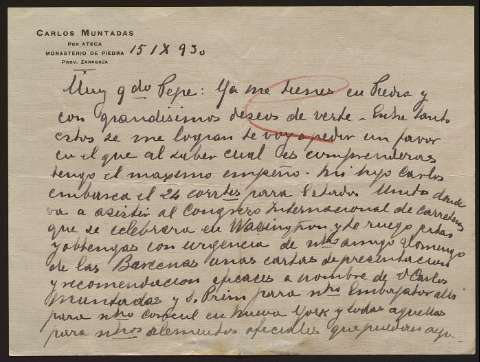 CARLOS MUNTADAS
POR ATECA
MONASTERIO DE PIEDRA
PROV. ZARAGOZA
15 IX 930
Muy qdo Pepe: Ya me tienes en Piedra y
con grandisimos deseos de verte - Entre tanto
estos se me logran te voy a pedir un favor
en el que al saber cual es comprenderas
tengo el maximo empeño. Mi hijo Carlos
embarca el 24 cortes para Estados Unidos donde
va a asistir al Congreso Internacional de Carreteras
que se celebrara en Wasington y te ruego pidas
y obtengas con urgencia de ntro amigo Domingo
de las Barcenas unas cartas de presentacion
y recomendacion eficaces a nombre de D Carlos
Muntadas y Prim para ntro Embajador alli
para ntro consul en Nueva York y todas aquellas
para ntros elementos oficiales que puedan ayu-